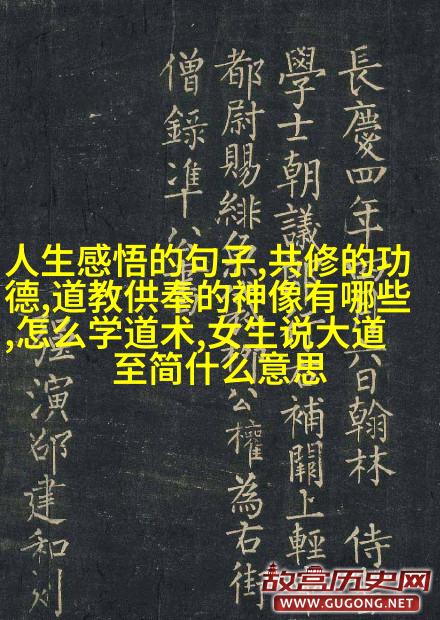 人生感悟的句子,共修的功
德,道教供奉的神像有哪些
,怎么学道术,女生说大道
至简什么意思
長慶四年六日翰林侍
學士朝議補闕上輕
都尉賜緋公權為右街
僧錄准
演邵建和刻
故宫历史网
WWW.GUGONG.NET